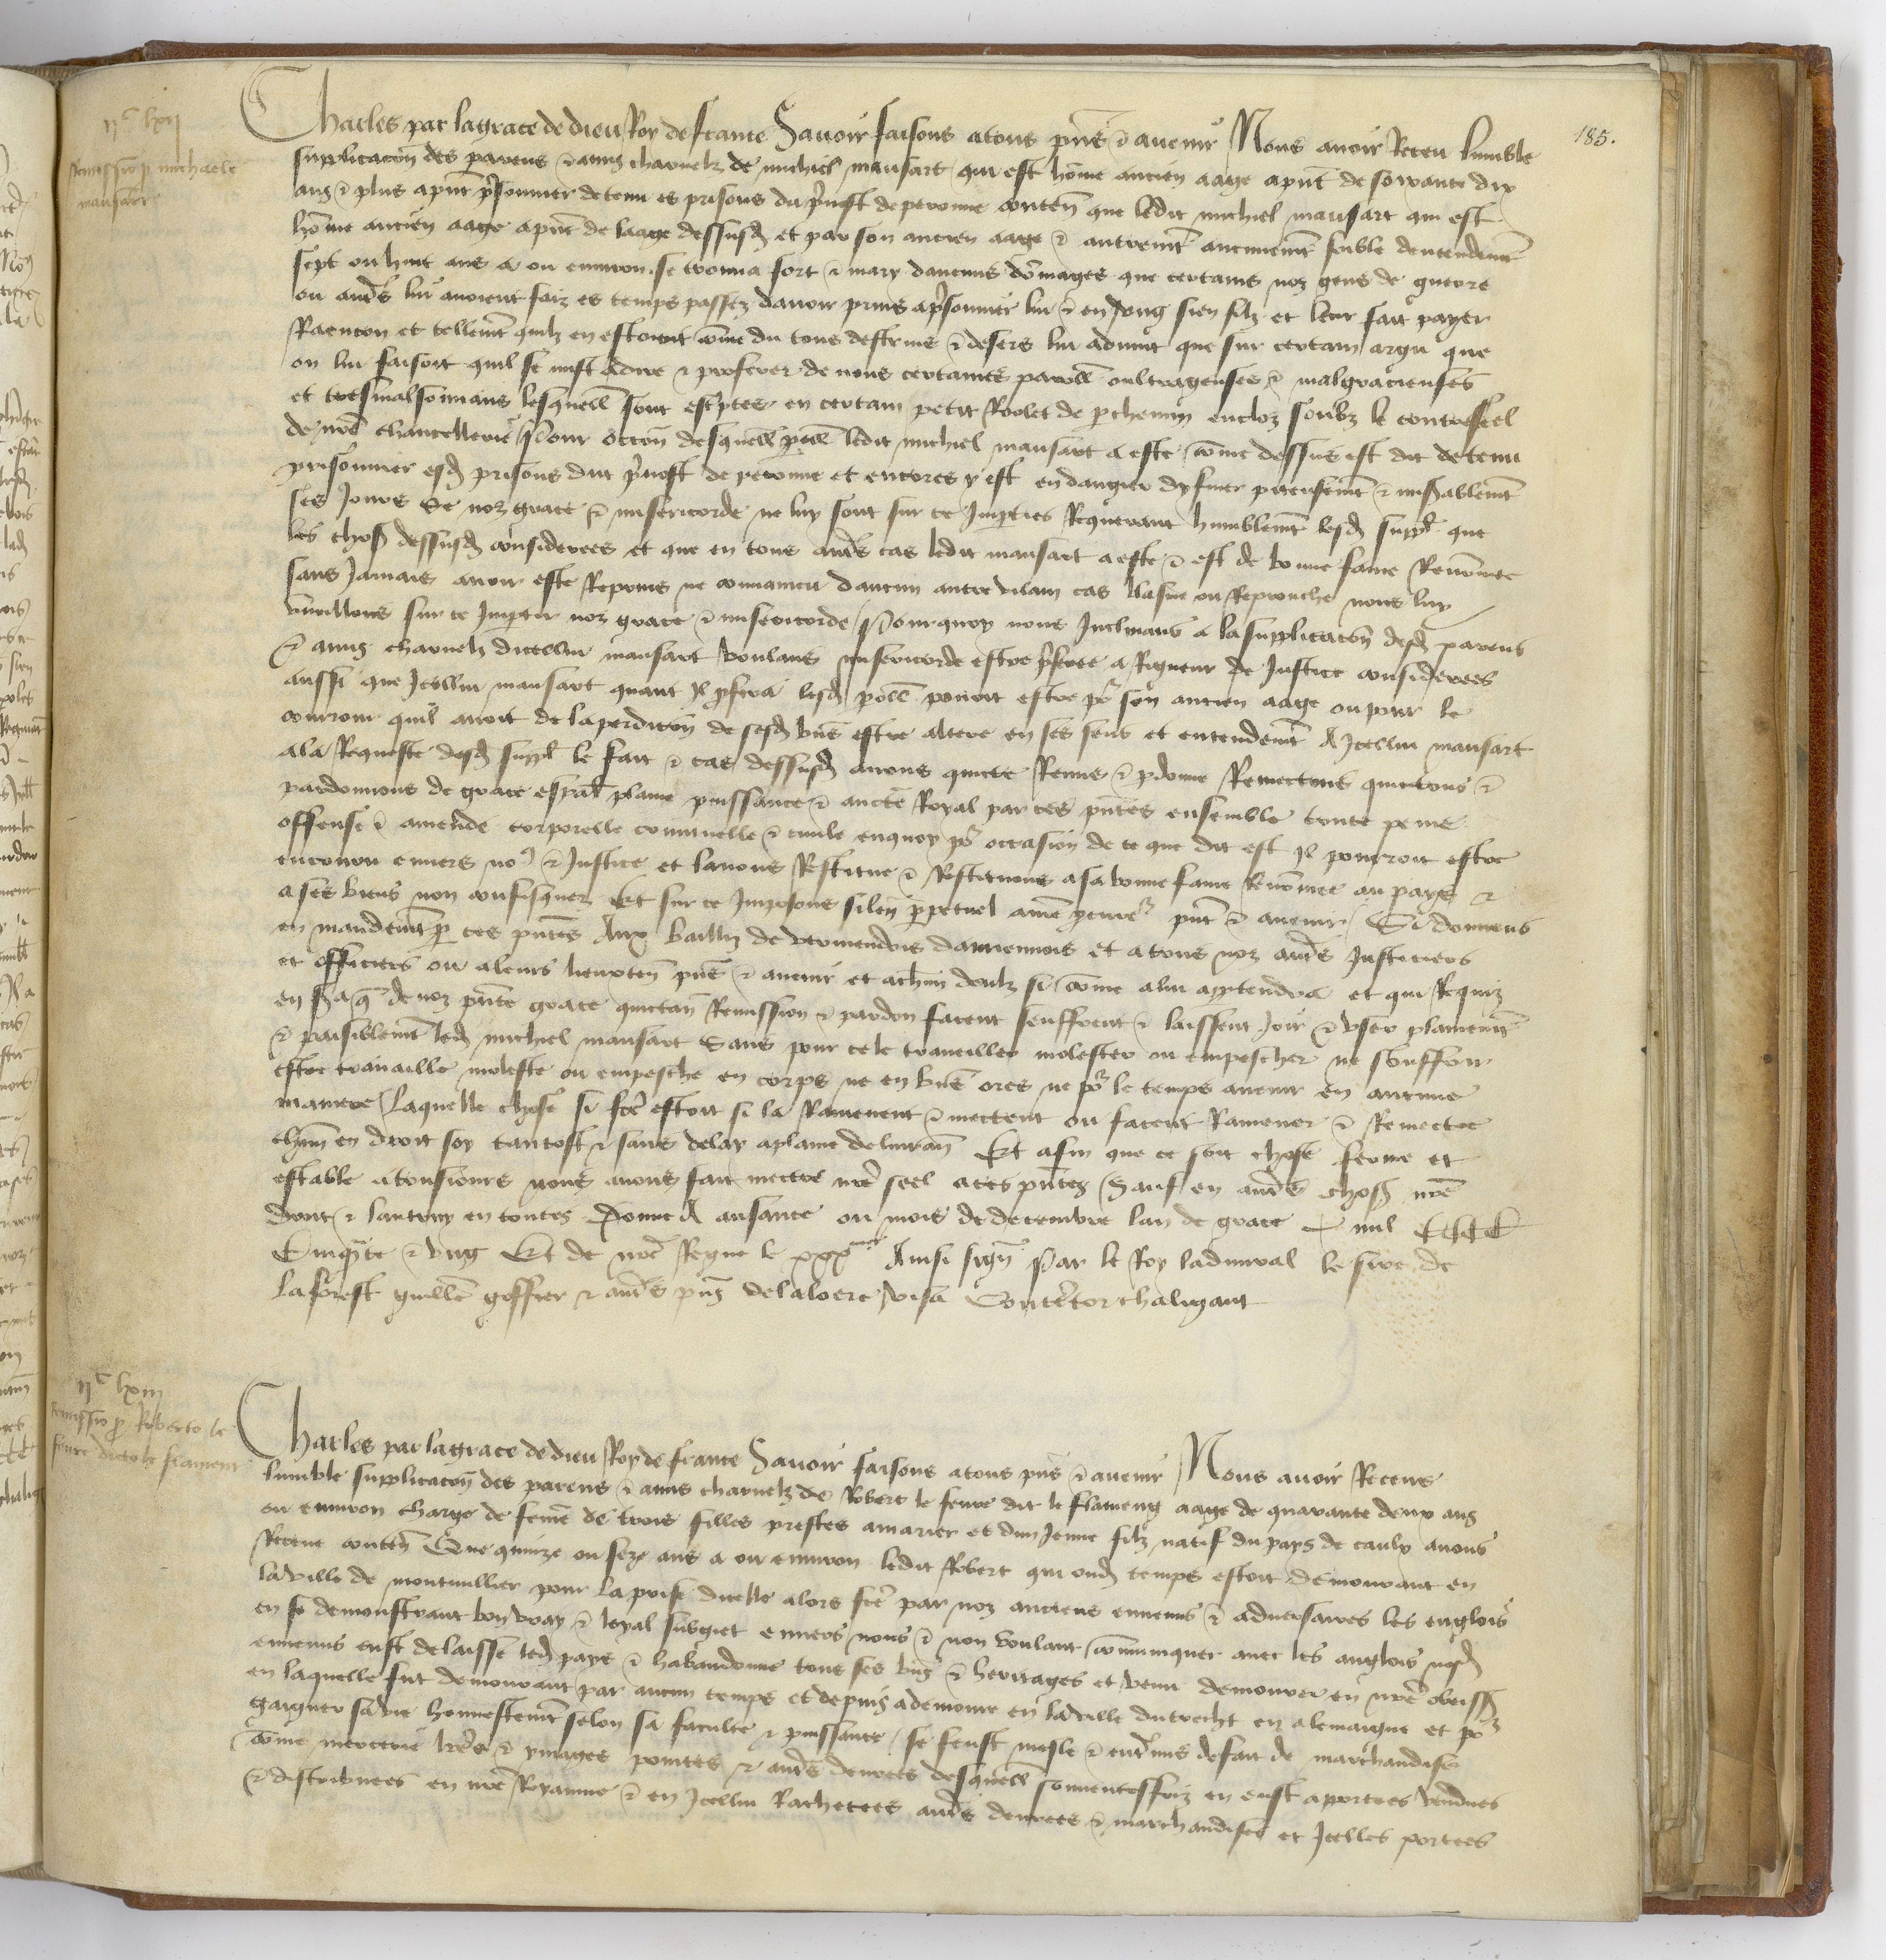 185.
IIc LXII
Remissio p michaele
mansart
Charles par la grace de dieu Roy de france Savoir faisons a tous pns & avenir Nous avoir Receu lumble
supplicacon des parens & amis charnelz de michiel mansart qui est home ancien aage a pnt de soixante dix
ans & plus a pnt prisonnier detenu es prisons du prevost de peronne conten que ledit michiel mansart qui est
home ancien aage a pnt de laage dessusd et par son ancien aage & autremt aucunemt foible dentendemt
sept ou huit ans a ou environ se trouva fort & mary daucuns domages que certains noz gens de guerre
ou autres lui avoient faiz es temps passez davoir prins a prisonnier lui & en ung sien filz et leur fait payer
Raencon et tellemt quilz en estoient come du tous destruis & desers lui advint que sur certain argu que
on lui faisoit quil se mist a dire & proferer de nous certaines parolles oultrageuses & malgracieuses
et tres mal sonnans lesquelles sont escriptes en certain petit Roolet de parchemin encloz soubz le contreseel
de nre chancellerie Pour occon desquelles parolles ledit michiel mansart a este come dessus est dit detenu
prisonnier esd prisons dud prevost de peronne et encores y est en dangier dy finer piteusemt & miserablemt
ses Jours se noz grace & misericorde ne luy sont sur ce Imparties Requerant humblemt lesd supplians que
les choses dessusd considerees et que en tous autres cas ledit mansart a este & est de bonne fame Renomee
sans Jamais avoir este Reprins ne convaincu daucun autre vilain cas blasme ou Reprouche nous luy
vueillons sur ce Impartir noz grace & misericorde Pourquoy nous Inclinans a la supplicacon desd parens
& amis charnelz dicellui mansart voulans misericorde estre preferee a Rigueur de Justice considerees
aussi que Icellui mansart quant Il profera lesd paroles povoit estre pour son ancien aage ou pour le
courroux quil avoit de la perdicion de sesd biens estre altere en ses sens et entendemt A Icellui mansart
a la Requeste desd suppl le fait & cas dessusd avons quicte Remis & pdonne Remectons quictons &
pardonnons de grace espal plaine puissance & aucte Royal par ces pntes ensemble toute peine
offense & amende corporelle criminelle & civile en quoy pour occasion de ce que dit est Il pourroit estre
encouru envers nous & Justice et lavons Restitue & Restituons a sa bonne fame Renomee au pays &
a ses biens non confisquez Et sur ce Imposons silence perpetuel a nre procureur pnt & avenir Si donnons
en mandemt par ces pntes Aux bailliz de vermendois damiennois et a tous noz autres Justiciers
et officiers ou a leurs lieuxten pns & avenir et a chun deulz si come a lui appartendra et qui Requiz
en sera que de noz pnte grace quictance Remission & pardon facent seuffrent & laissent Joir & user plainemt
& paisiblemt led michiel mansart sans pour ce le traveiller molester ou empescher ne souffrir
estre travaille moleste ou empesche en corps ne en biens ores ne pour le temps avenir en aucune
maniere Laquelle chose si fce estoit si la Ramenent & mectent ou facent Ramener & Remectre
chun en droit soy tantost & sans delay a plaine delivrance Et afin que ce soit chose ferme et
estable a tousiours nous avons fait mectre nre seel a ces pntes Sauf en autres choses nre
droit & lautruy en toutes Donne A ausance ou mois de decembre lan de grace mil CCCC
Cinqte & ung Et de nre Regne le xxxme Ainsi sign Par le Roy ladmiral le sire de
la forest guille goffier & autres pns delaloere visa Contentor chaligaut
IIc LXIII
Remissio p Roberto le
fevre dicto le flament
Charles par la grace de dieu Roy de france Savoir faisons a tous pns & avenir Nous avoir Receue
lumble supplicacon des parens & amis charnelz de Robert le fevre dit le flameng aage de quarante deux ans
ou environ charge de feme de trois filles prestes a marier et dun Jeune filz natif du pays de caulx avons
Receue conten Que quinze ou seze ans a ou environ ledit Robert qui oud temps estoit demourant en
la ville de monstivillier pour la prise dicelle alors fce par noz anciens ennemis & adversaires les englois
en se demonstrant bon vray & loyal subgiet envers nous & non voulant communiquer avec les anglois nosd
ennemis eust delaisse led pays & habandonne tous ses biens & heritages et venu demourer en nre obeissance
en laquelle fut demourant par aucun temps et depuis a demoure en la ville dutrecht en alemaigne et pour
gaigner sa vie honnestemt selon sa faculte & puissance se feust mesle & entremis de fait de marchandise
come mercerie livres & ymages pointes & autres denrees desquelles souventesfoiz en eust apportees vendues
& distribuees en nre Royaume & en Icellui Rachetees autres denrees & marchandises et Icelles portees